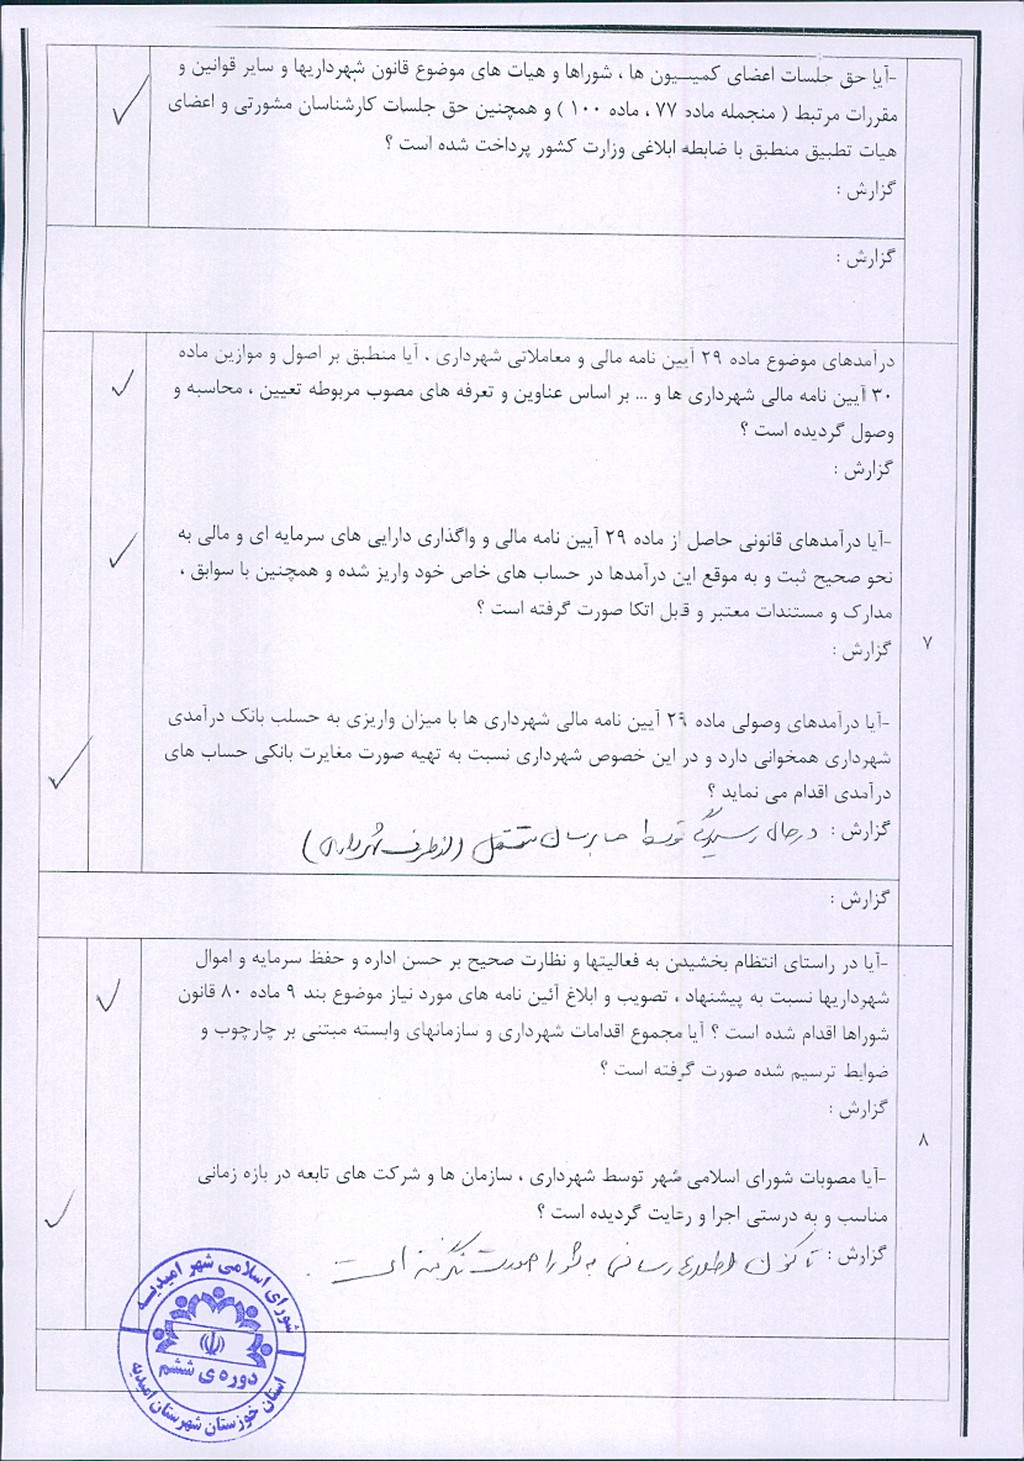 -آیا حق جلسات اعضای کمیسیون ها ، شوراها و هیات های موضوع قانون شهرداریها و سایر قوانین و
مقررات مرتبط ( منجمله ماده ۷۷ ، ماده ۱۰۰ ) و همچنین حق جلسات کارشناسان مشورتی و اعضای
هیات تطبیق منطبق با ضابطه ابلاغی وزارت کشور پرداخت شده است ؟
گزارش :
گزارش :
درآمدهای موضوع ماده ۲۹ آیین نامه مالی و معاملاتی شهرداری . آیا منطبق بر اصول و موازین ماده
۳۰ آیین نامه مالی شهرداری ها و ... بر اساس عناوین و تعرفه های مصوب مربوطه تعیین ، محاسبه و
وصول گردیده است ؟
گزارش :
-آیا درآمدهای قانونی حاصل از ماده ۲۹ آیین نامه مالی و واگذاری دارایی های سرمایه ای و مالی به
نحو صحیح ثبت و به موقع این درآمدها در حساب های خاص خود واریز شده و همچنین با سوابق ،
مدارک و مستندات معتبر و قبل اتکا صورت گرفته است ؟
۷
گزارش :
-آیا درآمدهای وصولی ماده ۲۹ آیین نامه مالی شهرداری ها با میزان واریزی به حسلب بانک درآمدی
شهرداری همخوانی دارد و در این خصوص شهرداری نسبت به تهیه صورت مغایرت بانکی حساب های
درآمدی اقدام می نماید ؟
گزارش : درحال رسیدگی توسط حسابرسان مستقل (از طرف شهرداری)
گزارش :
-آیا در راستای انتظام بخشیدن به فعالیتها و نظارت صحیح بر حسن اداره و حفظ سرمایه و اموال
شهرداریها نسبت به پیشنهاد ، تصویب و ابلاغ آئین نامه های مورد نیاز موضوع بند ۹ ماده ۸۰ قانون
شوراها اقدام شده است ؟ آیا مجموع اقدامات شهرداری و سازمانهای وابسته مبتنی بر چارچوب و
ضوابط ترسیم شده صورت گرفته است ؟
گزارش :
۸
-آیا مصوبات شورای اسلامی شهر توسط شهرداری ، سازمان ها و شرکت های تابعه در بازه زمانی
مناسب و به درستی اجرا و رعایت گردیده است ؟
گزارش : تا کنون اطلاع رسانی به شورا صورت نگرفته است .
شورای اسلامی شهر امیدیه
دوره ی ششم
استان خوزستان شهرستان امیدیه